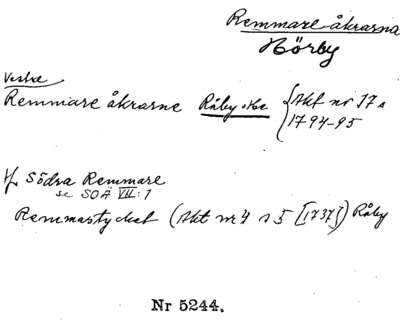 Remmare åkrarna
Hörby
Vestre
Remmare åkrarne Råby { Akt nr 17
1794-95
Jf Södra Remmare
se SOÄ VII: 1
Remmastycket (Akt nr 4 s 5 [1737]) Råby
Nr 5244.